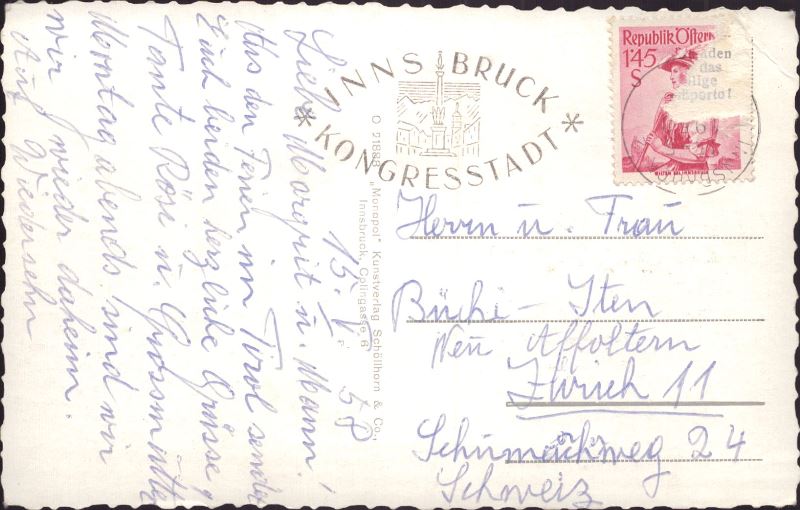 15. V. 58
Liebe Margrit u. Mann!
Aus den Ferien im Tirol sendet
Euch beiden herzliche Grüsse
Tante Rösi u. Grossmutter
Montag abends sind wir
wir wieder daheim.
Auf Wiedersehn
O 51888 „Monopol" Kunstverlag Schöllhorn & Co.,
Innsbruck, Colingasse 6
INNSBRUCK
* KONGRESSTADT *
Republik Österr
1'45
S
das
Herrn u. Frau
Büchi - Iten
Neu Affoltern
Zürich 11
24
Schweiz